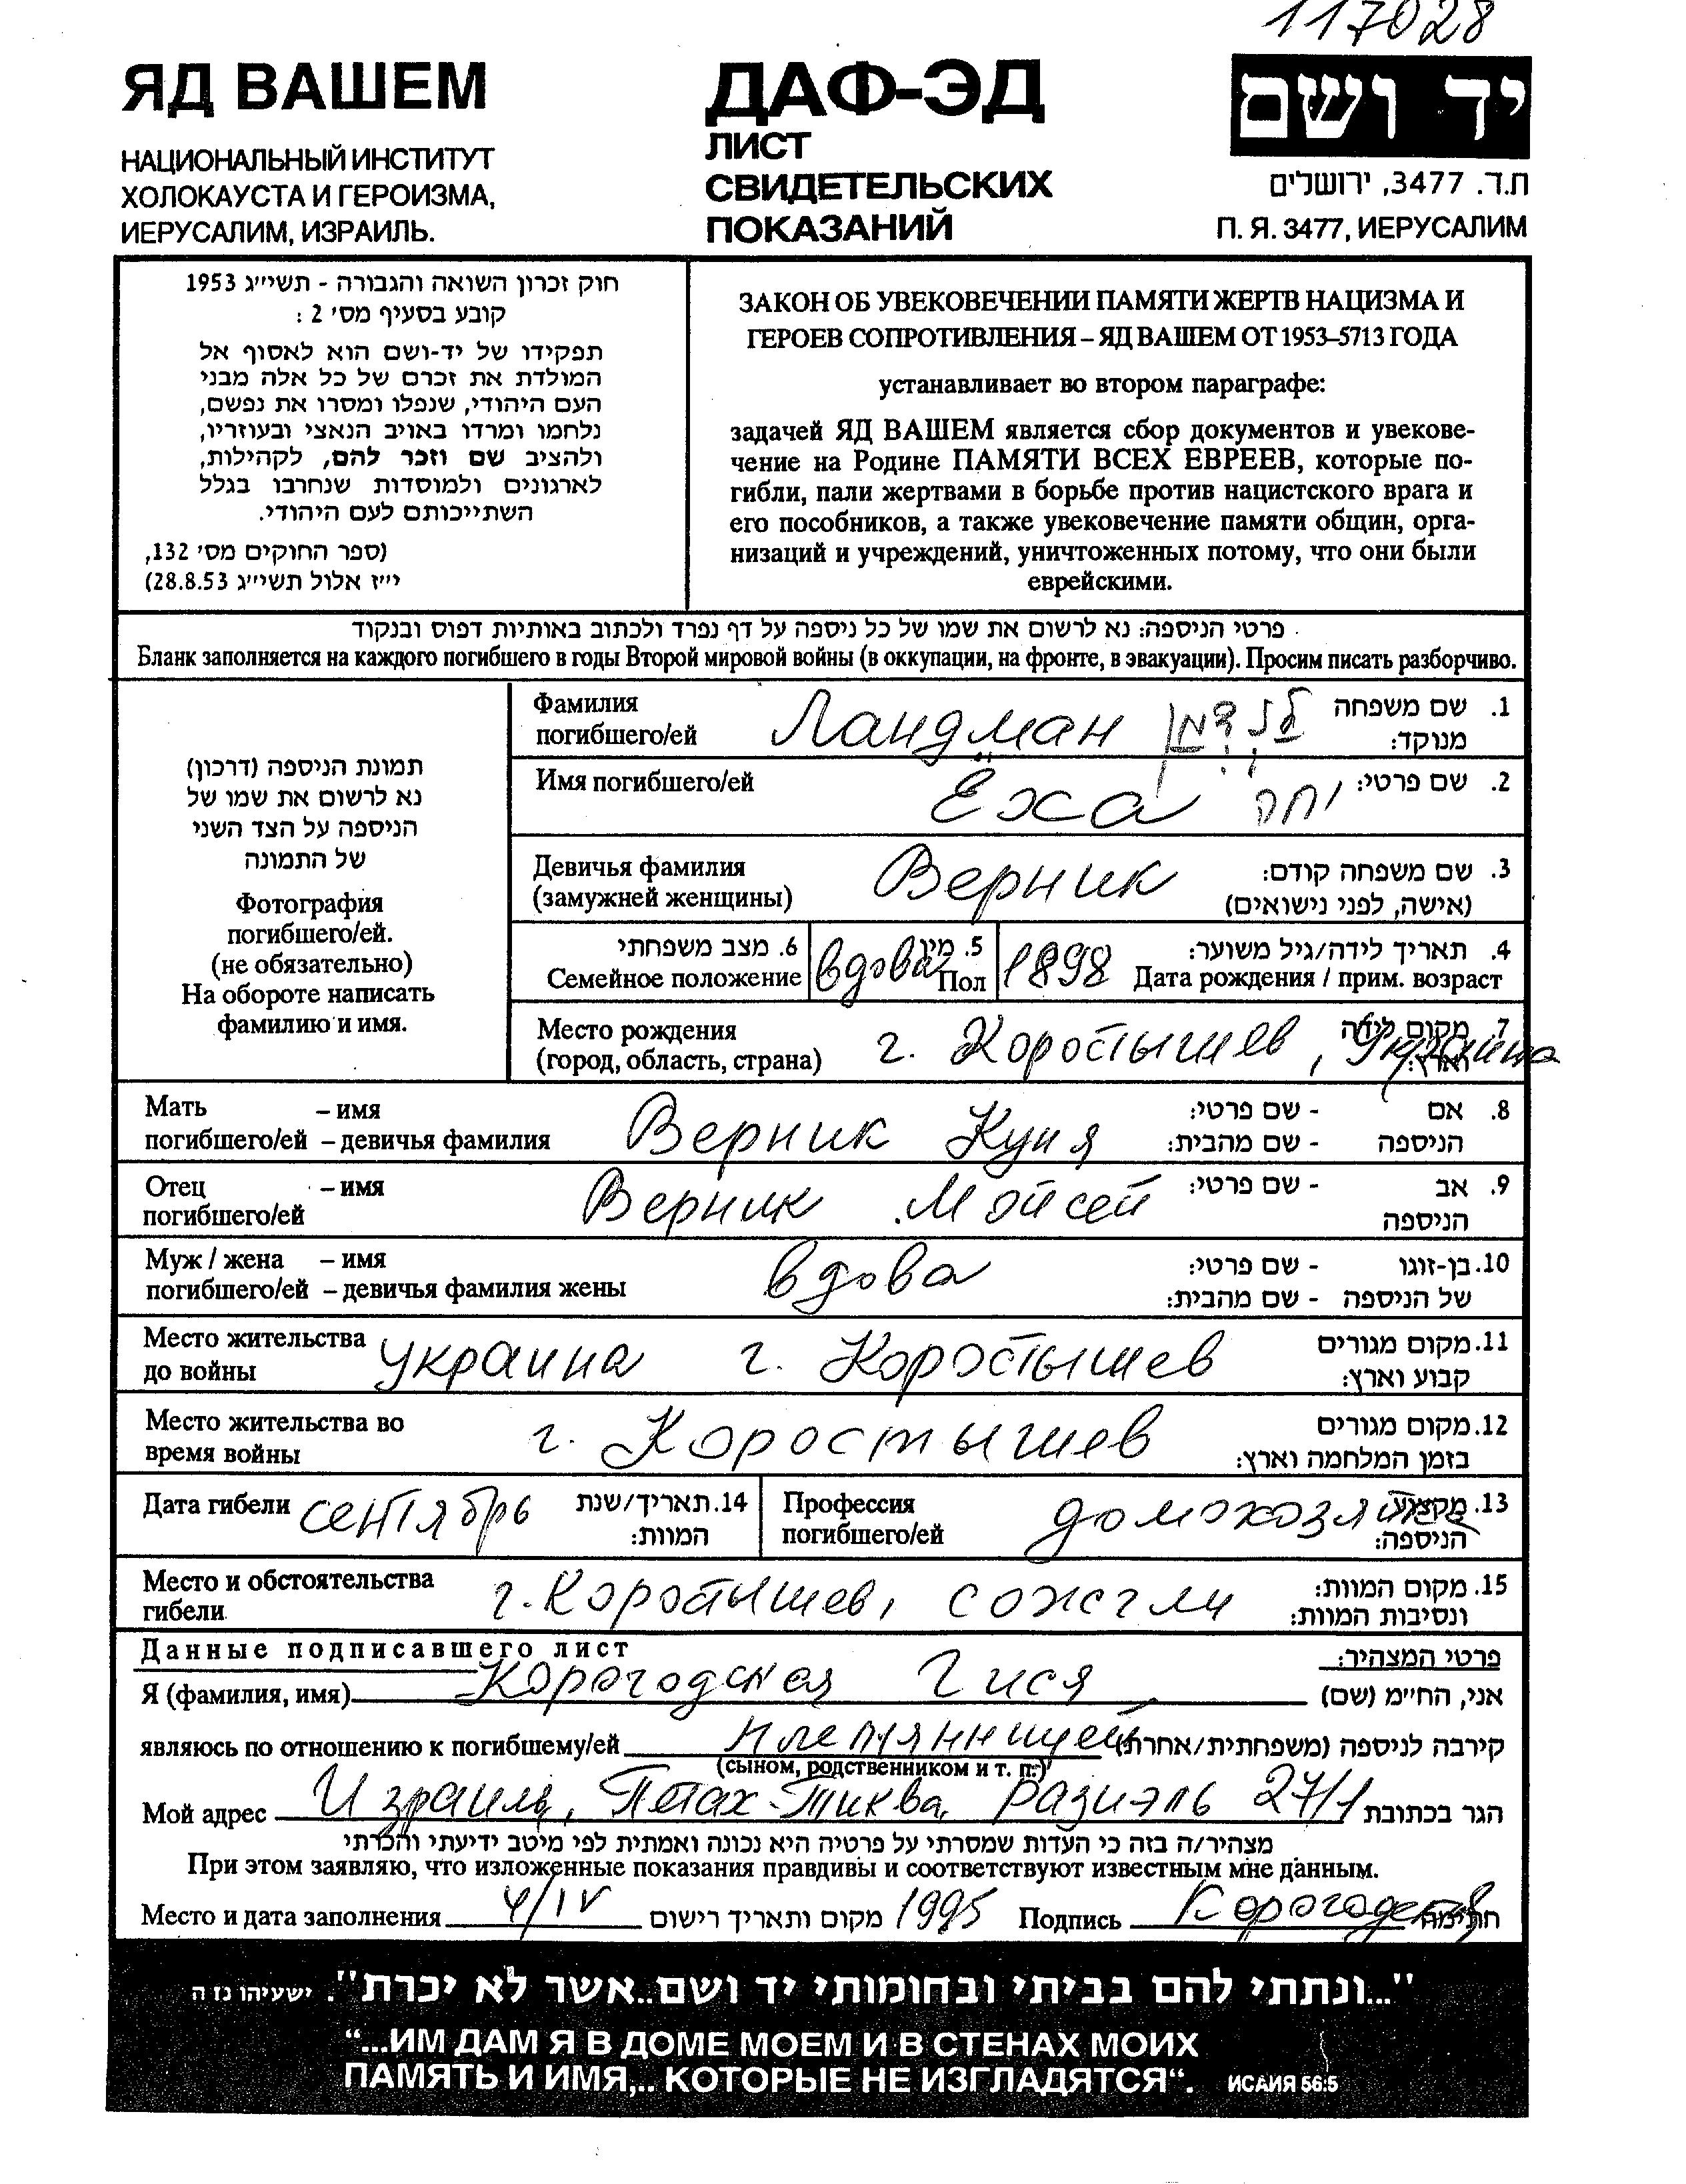 117028
ЯД ВАШЕМ
НАЦИОНАЛЬНЫЙ ИНСТИТУТ
ХОЛОКАУСТА И ГЕРОИЗМА,
ИЕРУСАЛИМ, ИЗРАИЛЬ.
ДАФ-ЭД
ЛИСТ
СВИДЕТЕЛЬСКИХ
ПОКАЗАНИЙ
יד ושם
ת.ד. 3477, ירושלים
П. Я. 3477, ИЕРУСАЛИМ
חוק זכרון השואה והגבורה - תשי״ג 1953
קובע בסעיף מס׳ 2 :
תפקידו של יד-ושם הוא לאסוף אל
המולדת את זכרם של כל אלה מבני
העם היהודי, שנפלו ומסרו את נפשם,
נלחמו ומרדו באויב הנאצי ובעוזריו,
ולהציב שם וזכר להם, לקהילות,
לארגונים ולמוסדות שנחרבו בגלל
השתייכותם לעם היהודי.
(ספר החוקים מס׳ 132,
י״ז אלול תשי״ג 28.8.53)
ЗАКОН ОБ УВЕКОВЕЧЕНИИ ПАМЯТИ ЖЕРТВ НАЦИЗМА И
ГЕРОЕВ СОПРОТИВЛЕНИЯ – ЯД ВАШЕМ ОТ 1953–5713 ГОДА
устанавливает во втором параграфе:
задачей ЯД ВАШЕМ является сбор документов и увекове-
чение на Родине ПАМЯТИ ВСЕХ ЕВРЕЕВ, которые по-
гибли, пали жертвами в борьбе против нацистского врага и
его пособников, а также увековечение памяти общин, орга-
низаций и учреждений, уничтоженных потому, что они были
еврейскими.
פרטי הניספה: נא לרשום את שמו של כל ניספה על דף נפרד ולכתוב באותיות דפוס ובנקוד
Бланк заполняется на каждого погибшего в годы Второй мировой войны (в оккупации, на фронте, в эвакуации). Просим писать разборчиво.
תמונת הניספה (דרכון)
נא לרשום את שמו של
הניספה על הצד השני
של התמונה
Фотография
погибшего/ей.
(не обязательно)
На обороте написать
фамилию и имя.
Фамилия
погибшего/ей Ландман לנדמן 1. שם משפחה
מנוקד:
Имя погибшего/ей Ёха יחה 2. שם פרטי:
Девичья фамилия
(замужней женщины) Верник 3. שם משפחה קודם:
(אישה, לפני נישואים)
6. מצב משפחתי
Семейное положение вдова 5. מין
Пол 1898 4. תאריך לידה/גיל משוער:
Дата рождения / прим. возраст
Место рождения
(город, область, страна) г. Коростышев, Украина 7. מקום לידה
וארץ:
Мать – имя
погибшего/ей – девичья фамилия Верник Куня 8. אם - שם פרטי:
הניספה - שם מהבית:
Отец – имя
погибшего/ей Верник Мойсей 9. אב - שם פרטי:
הניספה
Муж / жена – имя
погибшего/ей – девичья фамилия жены вдова 10. בן-זוגו - שם פרטי:
של הניספה - שם מהבית:
Место жительства
до войны Украина г. Коростышев 11. מקום מגורים
קבוע וארץ:
Место жительства во
время войны г. Коростышев 12. מקום מגורים
בזמן המלחמה וארץ:
Дата гибели сентябрь 14. תאריך/שנת
המוות:
Профессия
погибшего/ей домохозяйка 13. מקצוע
הניספה:
Место и обстоятельства
гибели г. Коростышев, сожгли 15. מקום המוות:
ונסיבות המוות:
Данные подписавшего лист פרטי המצהיר:
Я (фамилия, имя) Корогодская Гися אני, הח״מ (שם)
являюсь по отношению к погибшему/ей племянницей קירבה לניספה (משפחתית/אחרת)
(сыном, родственником и т. п.)
Мой адрес Израиль, Петах-Тиква, Разиэль 27/1 הגר בכתובת
מצהיר/ה בזה כי העדות שמסרתי על פרטיה היא נכונה ואמתית לפי מיטב ידיעתי והכרתי
При этом заявляю, что изложенные показания правдивы и соответствуют известным мне данным.
Место и дата заполнения 4/IV מקום ותאריך רישום 1995 Подпись Корогодская חתימה
"...ונתתי להם בביתי ובחומותי יד ושם..אשר לא יכרת". ישעיהו נז ה
“...ИМ ДАМ Я В ДОМЕ МОЕМ И В СТЕНАХ МОИХ
ПАМЯТЬ И ИМЯ,.. КОТОРЫЕ НЕ ИЗГЛАДЯТСЯ“. ИСАИЯ 56:5